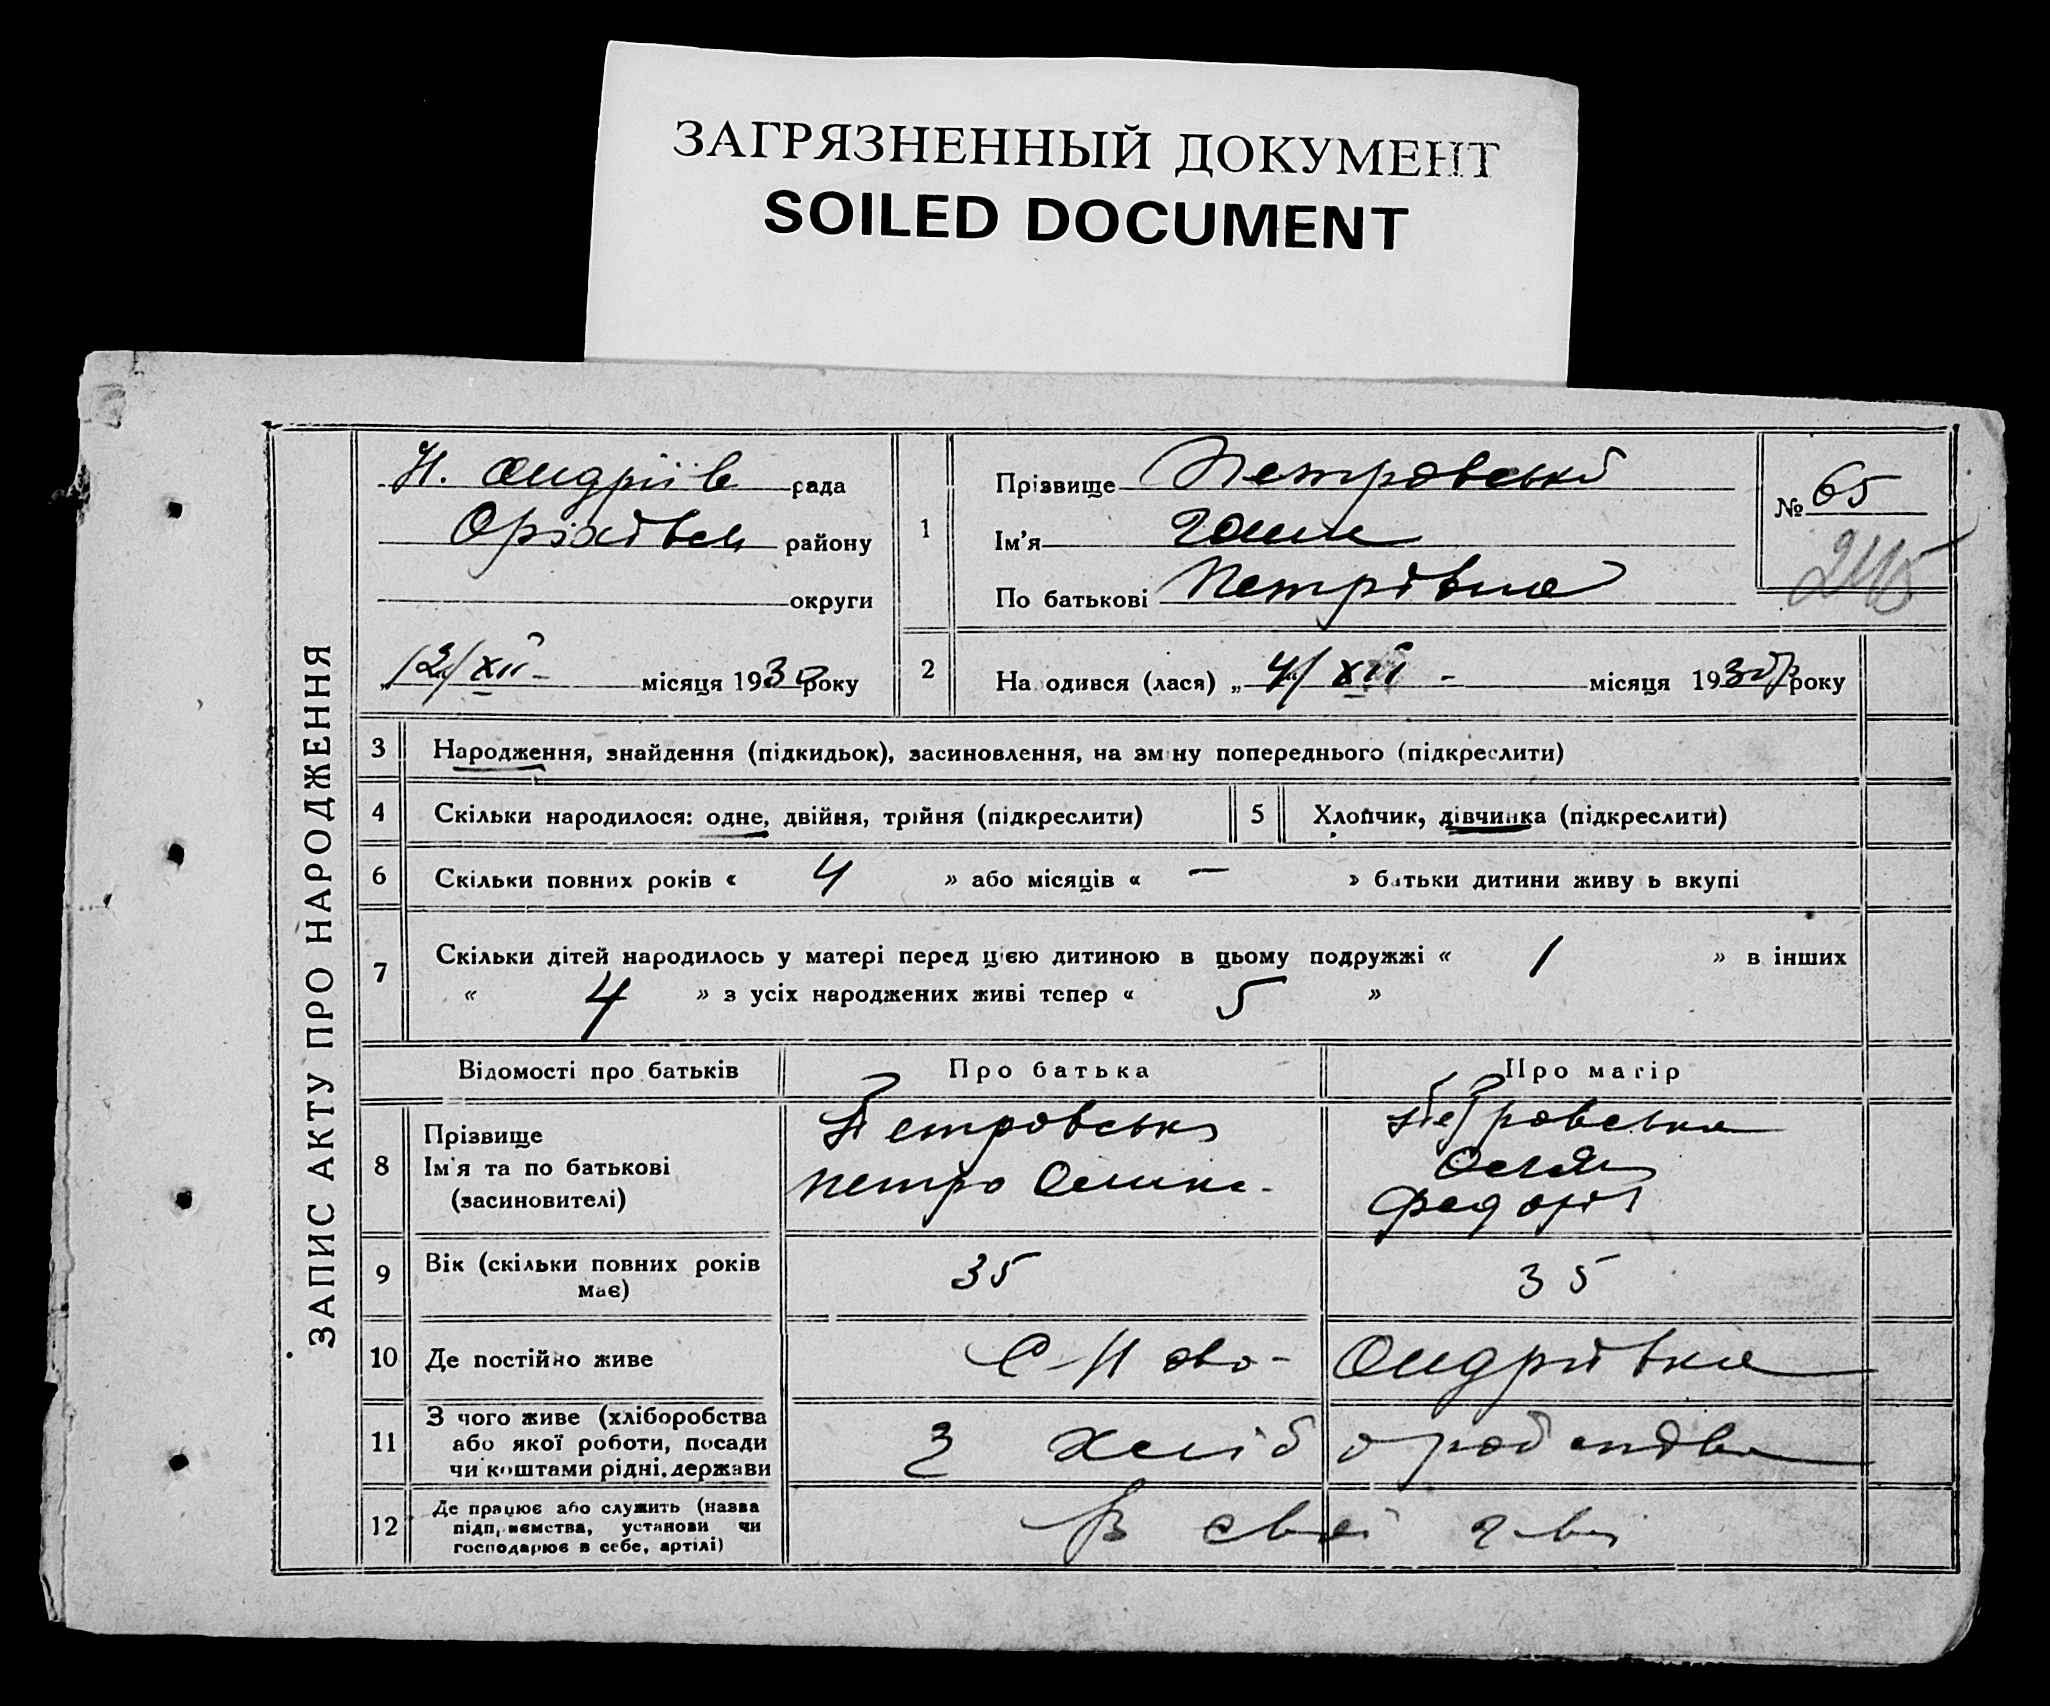 ЗАГРЯЗНЕННЫЙ ДОКУМЕНТ
SOILED DOCUMENT
ЗАПИС АКТУ ПРО НАРОДЖЕННЯ
Н. Андріїв рада
Оріхівськ району
округи
12/XII - місяця 1930 року
1
Прізвище Петровськ
Ім'я Ганна
По батькові Петрівна
№ 65
245
2 На одився (лася) „ 4/XII - місяця 1930р року
3 Народження, знайдення (підкидьок), засиновлення, на зм ну попереднього (підкреслити)
4 Скільки народилося: одне, двійня, трійня (підкреслити) 5 Хлопчик, дівчинка (підкреслити)
6 Скільки повних років « 4 » або місяців « — » батьки дитини живу ь вкупі
7 Скільки дітей народилось у матері перед цією дитиною в цьому подружжі « 1 » в інших
« 4 » з усіх народжених живі тепер « 5 »
Відомості про батьків Про батька Про матір
8 Прізвище
Ім'я та по батькові
(засиновителі)
Петровськ
Петро
Петровська
Федорів
9 Вік (скільки повних років
має)
35 35
10 Де постійно живе С-Ново- Андріївка
11 З чого живе (хліборобства
або якої роботи, посади
чи коштами рідні, держави
З хліборобства
12 Де працює або служить (назва
підп, иємства, установи чи
господарює в себе, артілі)
В свої